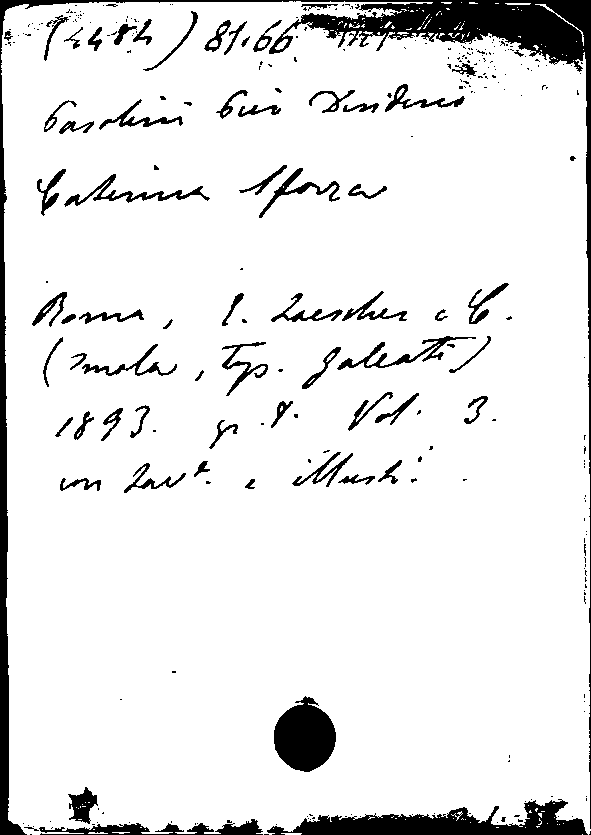 (4484) 81.66
Pasolini Pier Desiderio
Caterina Sforza
Roma, E. Loescher e C.
(Imola, tip. Galeati)
1893. gr. 8. Vol. 3.
con tav.e e illustr.i